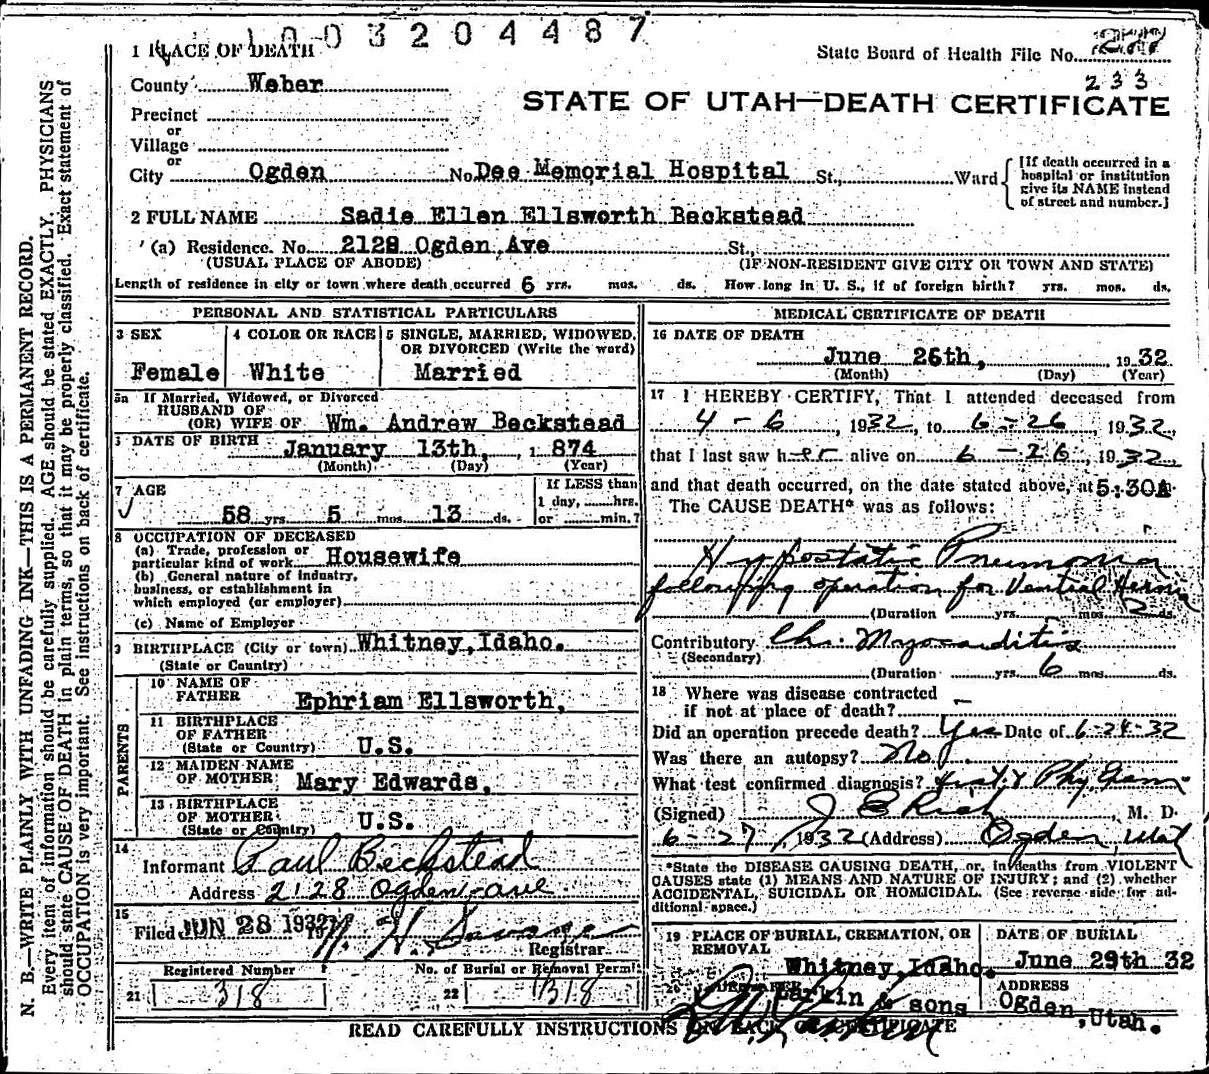 1003204487
1 PLACE OF DEATH
State Board of Health File No.
233
County Weber
STATE OF UTAH—DEATH CERTIFICATE
Precinct
or
Village
or
City Ogden No. Dee Memorial Hospital St., Ward
[If death occurred in a
hospital or institution
give its NAME instead
of street and number.]
2 FULL NAME Sadie Ellen Ellsworth Beckstead
(a) Residence. No. 2128 Ogden Ave St.,
(USUAL PLACE OF ABODE) (IF NON-RESIDENT GIVE CITY OR TOWN AND STATE)
Length of residence in city or town where death occurred 6 yrs. mos. ds. How long in U. S., if of foreign birth? yrs. mos. ds.
PERSONAL AND STATISTICAL PARTICULARS
3 SEX
Female
4 COLOR OR RACE
White
5 SINGLE, MARRIED, WIDOWED,
OR DIVORCED (Write the word)
Married
5a If Married, Widowed, or Divorced
HUSBAND OF
(OR) WIFE OF Wm. Andrew Beckstead
DATE OF BIRTH
January 13th, 1 874
(Month) (Day) (Year)
7 AGE
58 yrs 5 mos 13 ds.
If LESS than
1 day, hrs.
or min.?
8 OCCUPATION OF DECEASED
(a) Trade, profession or
particular kind of work Housewife
(b) General nature of industry,
business, or establishment in
which employed (or employer)
(c) Name of Employer
9 BIRTHPLACE (City or town) Whitney, Idaho.
(State or Country)
PARENTS
10 NAME OF
FATHER Ephriam Ellsworth,
11 BIRTHPLACE
OF FATHER
(State or Country) U.S.
12 MAIDEN NAME
OF MOTHER Mary Edwards,
13 BIRTHPLACE
OF MOTHER
(State or Country) U.S.
14
Informant Paul Beckstead
Address 2128 Ogden ave
15
Filed JUN 28 1932
Registrar
Registered Number
21 318
No. of Burial or Removal Permit
22 1318
MEDICAL CERTIFICATE OF DEATH
16 DATE OF DEATH
June 26th, 1932
(Month) (Day) (Year)
17 I HEREBY CERTIFY, That I attended deceased from
4 - 6, 1932, to 6 - 26, 1932,
that I last saw her alive on 6 - 26, 1932
and that death occurred, on the date stated above, at 5:30A
The CAUSE DEATH* was as follows:
Hypostatic Pneumonia
following operation for Ventral Hernia
(Duration yrs. mos. 2 ds.
Contributory Chr. Myocarditis
(Secondary)
(Duration yrs. 6 mos. ds.
18 Where was disease contracted
if not at place of death? -
Did an operation precede death? Yes Date of 6-24-32
Was there an autopsy? No
What test confirmed diagnosis? Hist. & Phy Exam
(Signed) J E Rich, M. D.
6-27, 1932 (Address) Ogden, Utah
*State the DISEASE CAUSING DEATH, or, in deaths from VIOLENT
CAUSES state (1) MEANS AND NATURE OF INJURY; and (2) whether
ACCIDENTAL, SUICIDAL OR HOMICIDAL. (See reverse side for ad-
ditional space.)
19 PLACE OF BURIAL, CREMATION, OR
REMOVAL
Whitney, Idaho.
DATE OF BURIAL
June 29th 32
20 UNDERTAKER
Larkin & sons
ADDRESS
Ogden, Utah.
READ CAREFULLY INSTRUCTIONS ON BACK OF CERTIFICATE
N. B.—WRITE PLAINLY WITH UNFADING INK—THIS IS A PERMANENT RECORD.
Every item of information should be carefully supplied. AGE should be stated EXACTLY. PHYSICIANS
should state CAUSE OF DEATH in plain terms, so that it may be properly classified. Exact statement of
OCCUPATION is very important. See instructions on back of certificate.